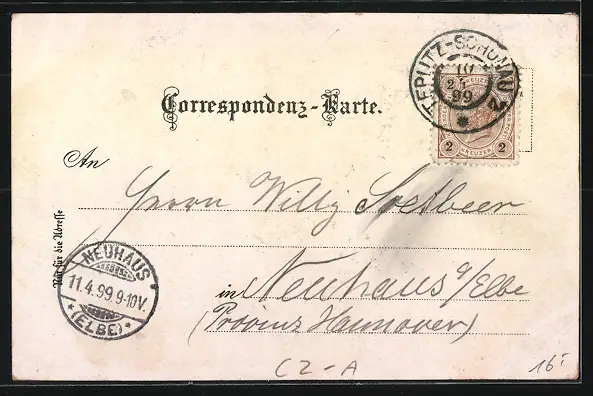 TEPLITZ-SCHÖNAU 2
10
99
KREUZER
2 KREUZER 2
Correspondenz-Karte.
An
Herrn Willy Soetbeer
Nur für die Adresse
NEUHAUS
11.4.99 9-10V.
* (ELBE) *
in Neuhaus a/Elbe
(Provinz Hannover)
CZ-A
16-